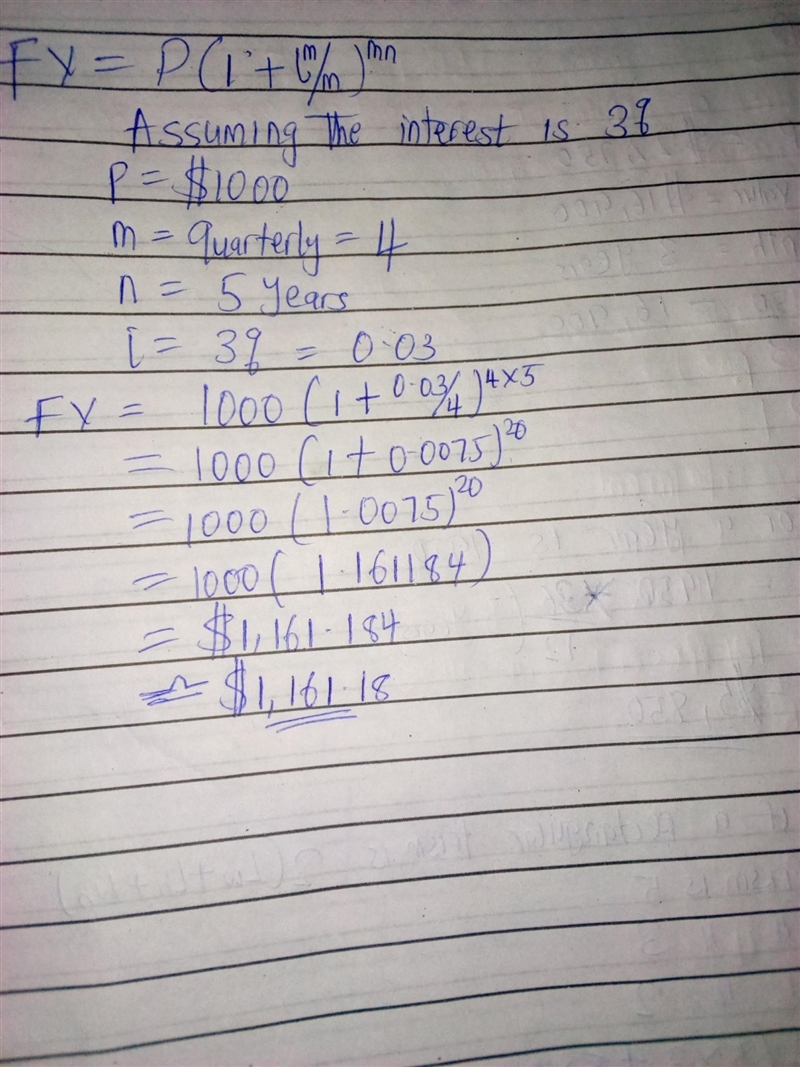 FV = P(1 + i^m/m)^mn
Assuming The interest is 3%
P = $1000
m = quarterly = 4
n = 5 years
i = 3% = 0.03
FV = 1000 (1 + 0.03/4)^4×5
= 1000 (1 + 0.0075)^20
= 1000 (1.0075)^20
= 1000 ( 1.161184)
= $1,161.184
≃ $1,161.18